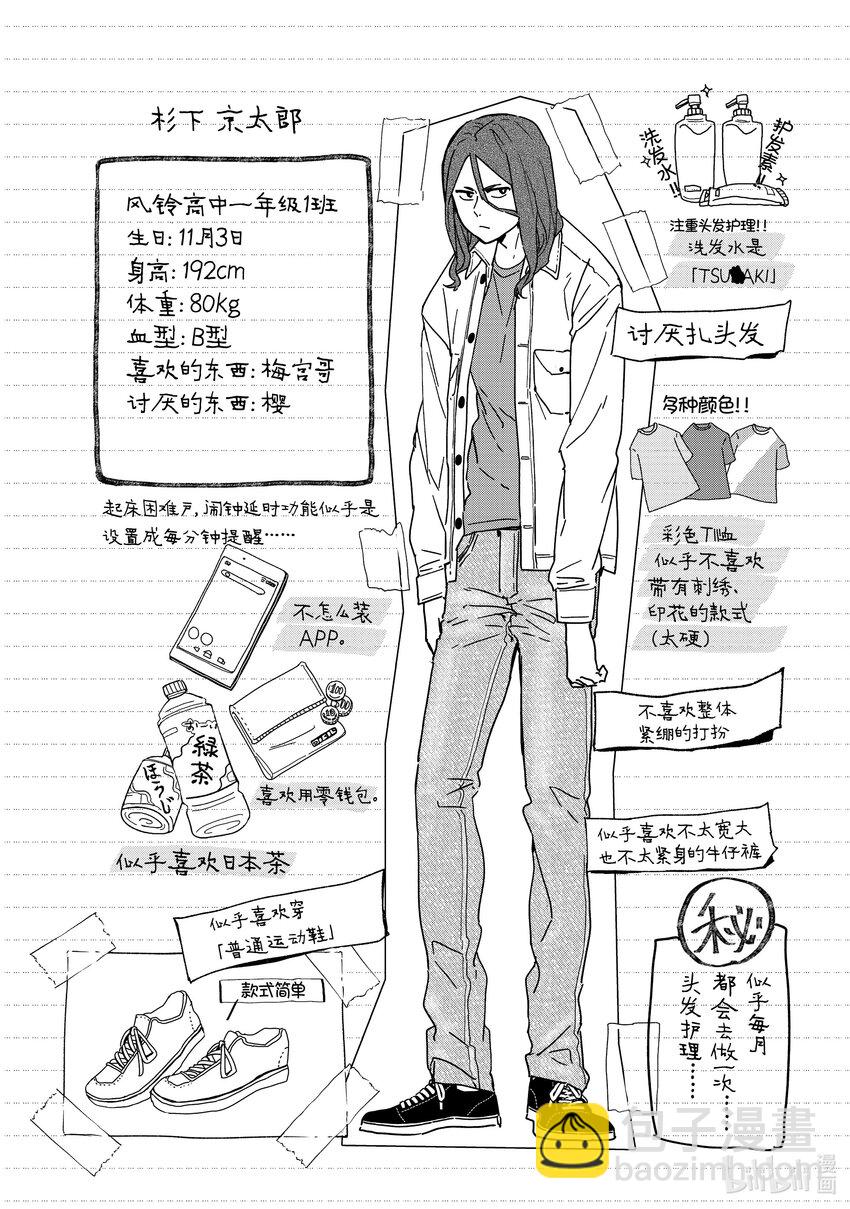 杉下 京太郎
风铃高中一年级1班
生日:11月3日
身高:192cm
体重:80kg
血型:B型
喜欢的东西:梅宫哥
讨厌的东西:樱
起床困难户,闹钟延时功能似乎是
设置成每分钟提醒……
不怎么装
APP。
100
100
10
お〜い
緑茶
ほうじ
喜欢用零钱包。
似乎喜欢日本茶
似乎喜欢穿
「普通运动鞋」
款式简单
洗发水!!
护发素!!
注重头发护理!!
洗发水是
「TSU AKI」
讨厌扎头发
多种颜色!!
彩色T恤
似乎不喜欢
带有刺绣、
印花的款式
(太硬)
不喜欢整体
紧绷的打扮
似乎喜欢不太宽大
也不太紧身的牛仔裤
秘
似乎每月
都会去做一次……
头发护理……
包子漫畫
baozimh.com
BiliBili
漫画